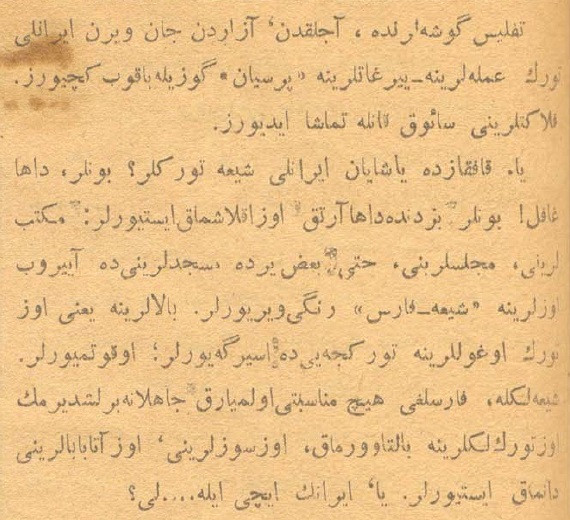 تفلیس گوشه‌لرنده ، آجلقدن، آزاردن جان ویرن ایرانلی
تورك عمله‌لرینه_پیرغاتلرینه «پرسیان» گوزیله باقوب کچیورز.
فلاکتلرینی سائوق قانله تماشا ایدیورز.
یا، قافقازده یاشایان ایرانلی شیعه تورکلر؟ بونلر، داها
غافل! بونلر بزدنده داها آرتق اوزاقلاشماق ایستیورلر: مکتب
لرینی، مجلسلرینی، حتی بعض یرده ،سجدلرینی ده آییروب
اوزلرینه «شیعه_فارس» رنگی ویریورلر. بالالرینه یعنی اوز
تورك اوغوللرینه تورکجه‌یی ده اسیرگه‌یورلر؛ اوقوتمیورلر.
شیعه‌لکله، فارسلغی هیچ مناسبتی اولمیارق جاهلانه برلشدیرمك
اوز تورك‌لکلرینه بالتا وورماق، اوز سوزلرینی، اوز آتا بابالرینی
دانماق ایستیورلر. یا، ایرانك ایچی ایله....لی؟